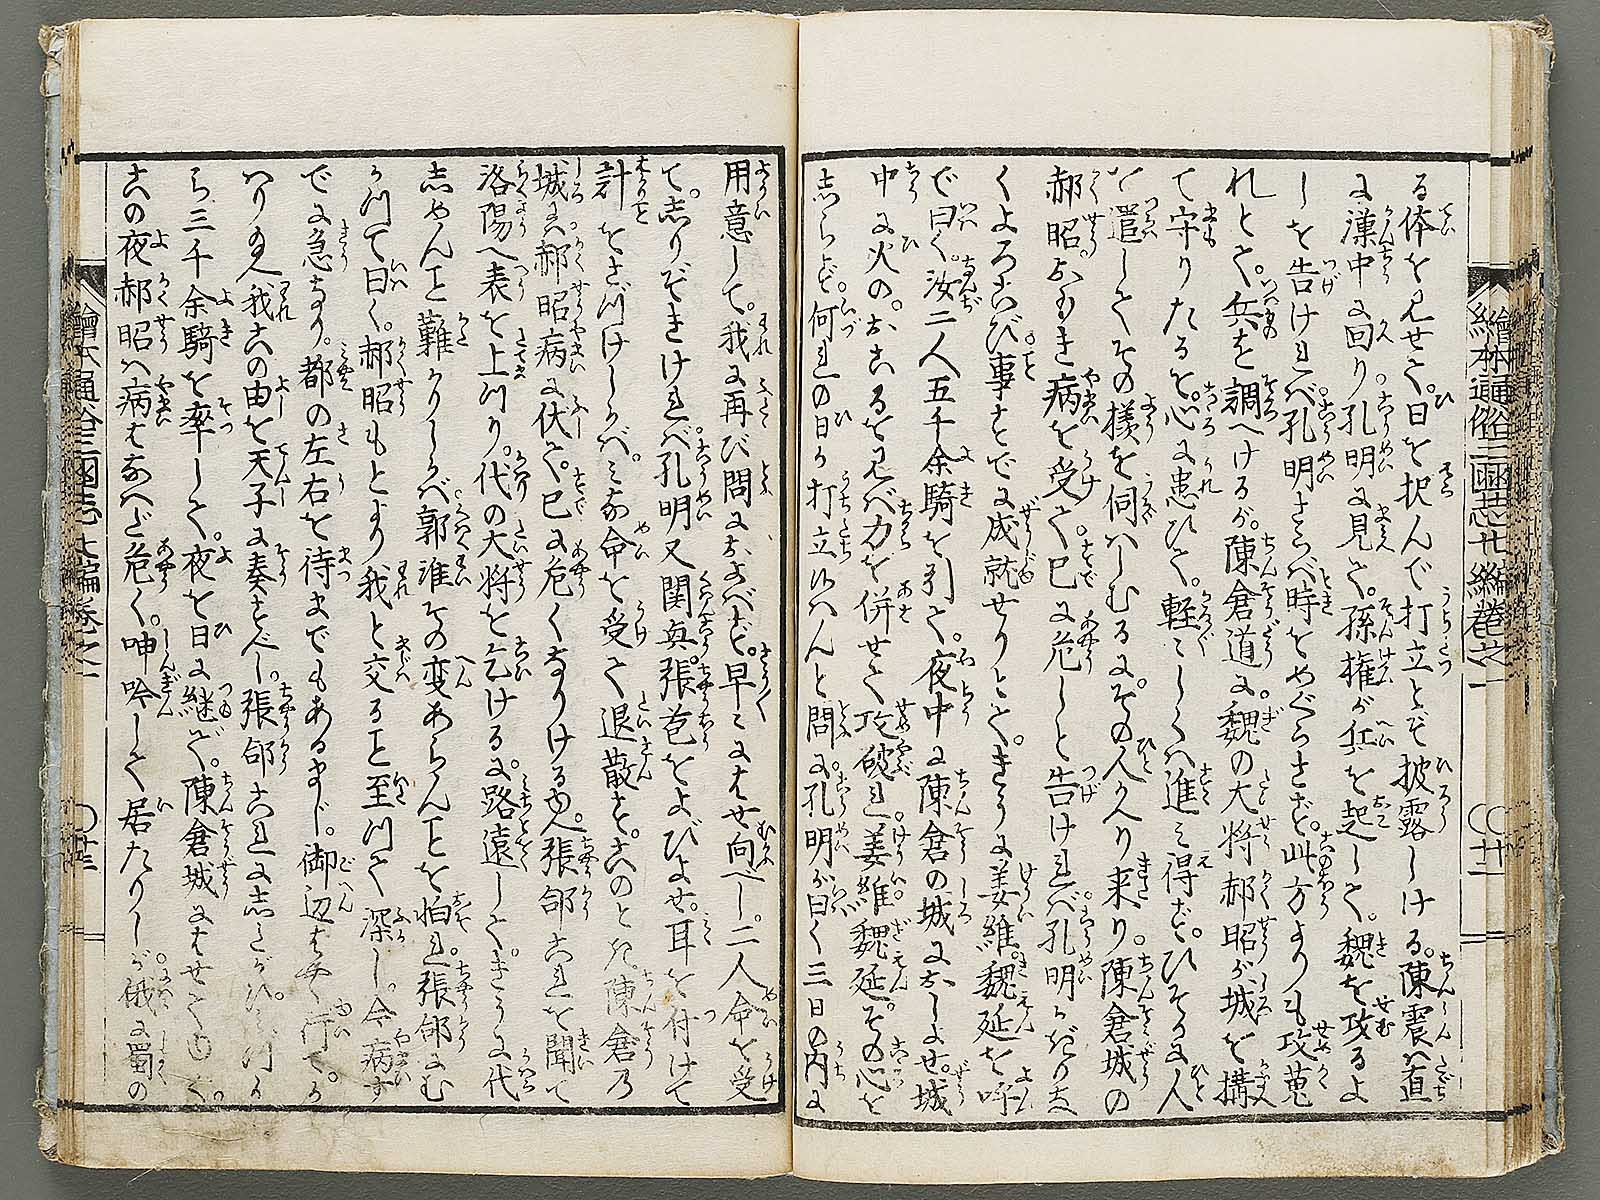 る体を見せて。日を択んで打立とぞ披露しける。陳震は直
に漢中に回り。孔明に見えて。孫権が兵を起して。魏を攻るよ
しを告けれバ。孔明さらバ時をめぐらさず。此方よりも攻蒐
れとて。兵を調へけるが。陳倉道に。魏の大将郝昭が城を構
て守りたるを。心に患ひて。軽々しくハ進ミ得ず。ひそかに人
を遣してその様を伺ハしむるに。その人かへり来り。陳倉城の
郝昭。おもき病を受て。已に危しと告けれバ。孔明かぎりな
くよろこび。事すでに成就せりとて。きうに姜維。魏延を呼
で曰く。汝二人五千余騎を引て。夜中に陳倉の城におしよせ。城
中に火の。おこるを見バ力を併せて攻破れ。姜維。魏延。その心を
しらず。何れの日か打立候ハんと問に。孔明が曰く三日の内に
用意して。我に再び問におよバず。早々にはせ向べし。二人命を受
て。しりぞきけれバ。孔明又関興。張苞をよびよせ。耳を付けて
計をさづけしかバ。ミな命を受て退散す。このとき。陳倉乃
城にハ。郝昭病に伏て。已に危くなりける由。張郃これを聞て
洛陽へ表を上つり。代の大将を乞ける。に路遠して。きうに代
しめんと難かりしかバ。郭淮その変あらんことを怕れ。張郃にむ
かつて曰く。郝昭もとより我と交ること至つて深し。今病す
でに急なり。都の左右を待までもあるまじ。御辺はやく行てか
ハり玉へ。我この由を天子に奏すべし。張郃これにしたがひ。
ち三千余騎を率して。夜を日に継で。陳倉城にはせ
この夜郝昭ハ病はなハだ危く。呻吟して居たりしが。俄に蜀の
繪本通俗三國志七編巻之一
繪本通俗三國志七編巻之一